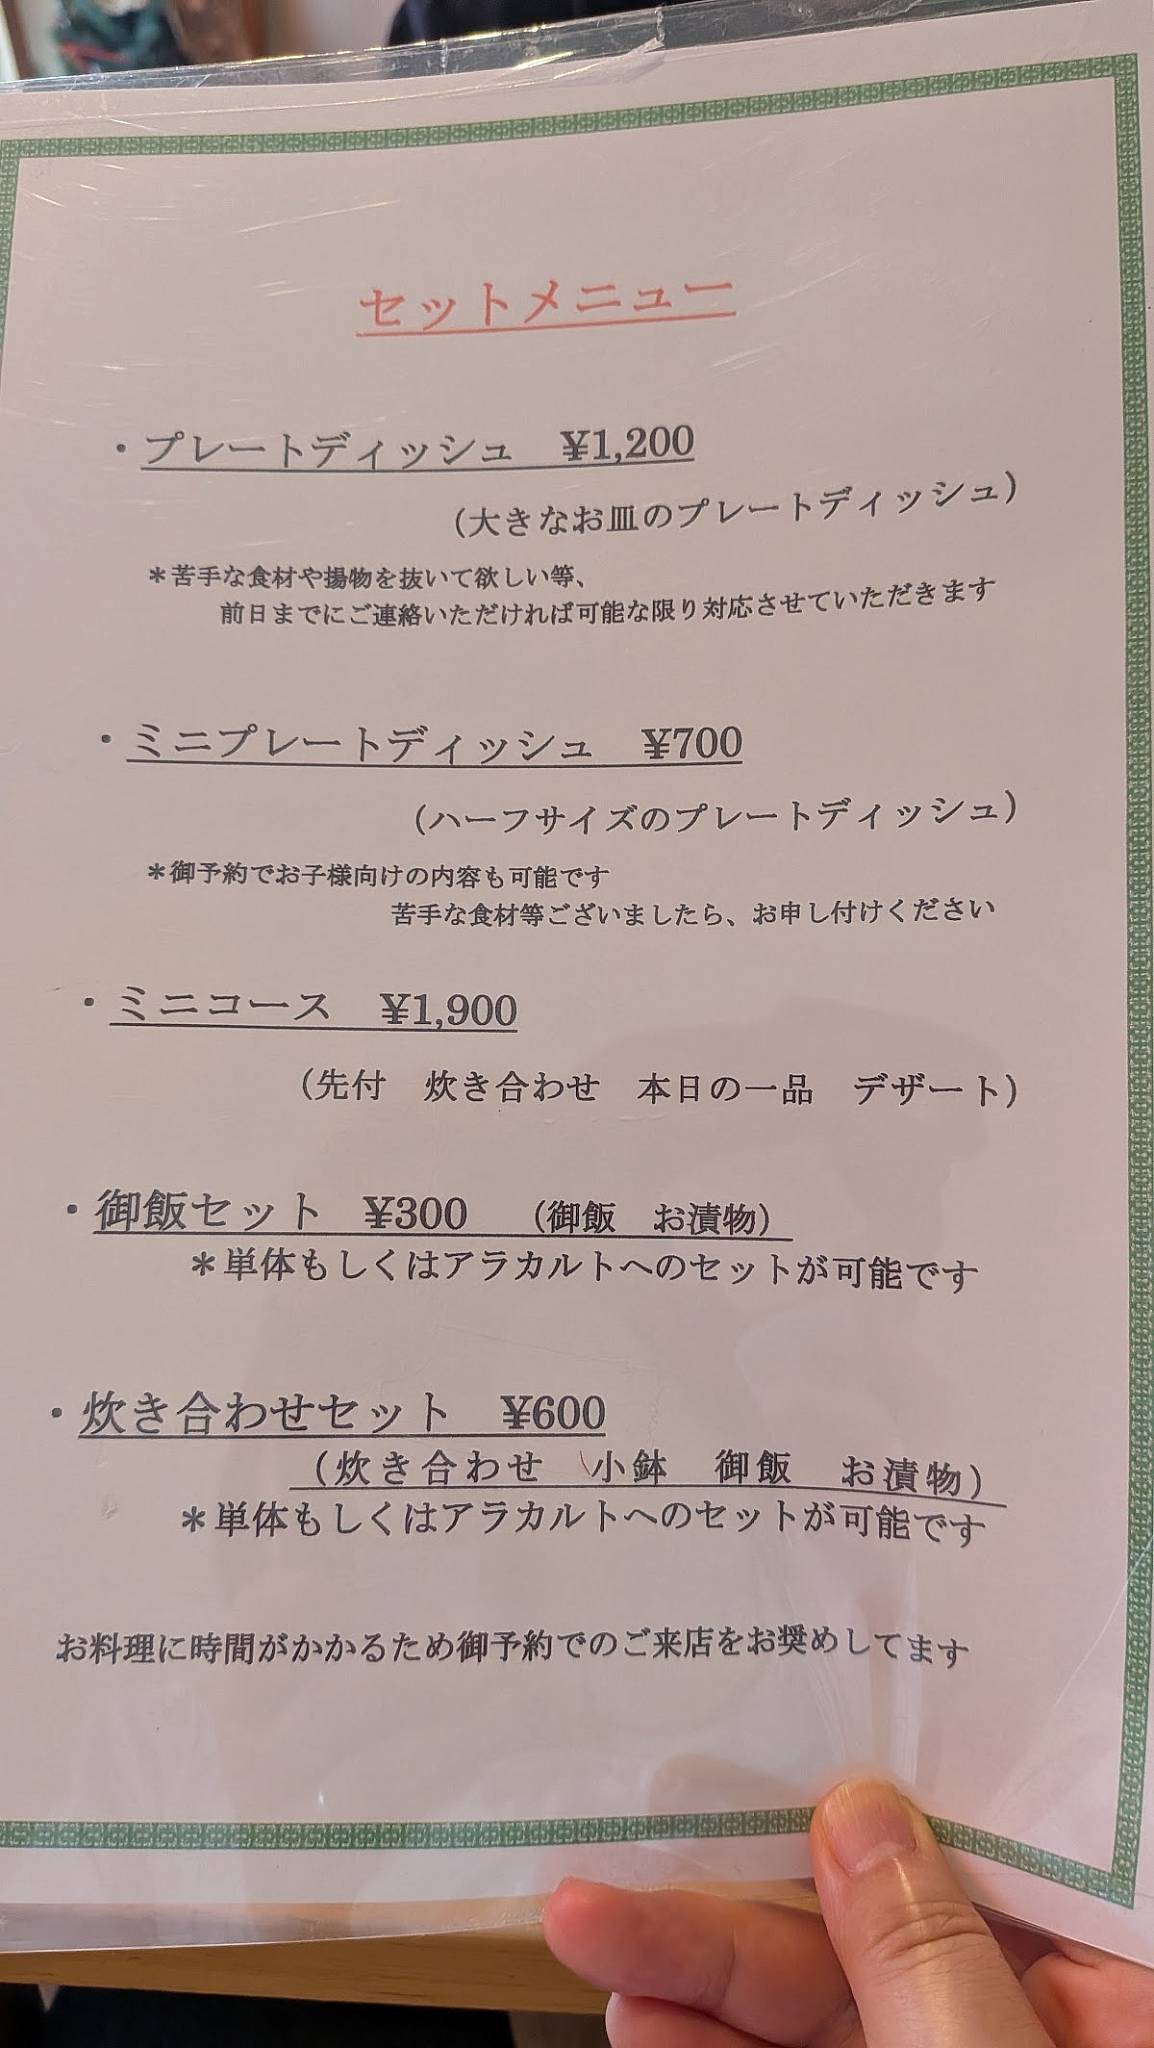 セットメニュー
・プレートディッシュ　¥1,200
（大きなお皿のプレートディッシュ）
＊苦手な食材や揚物を抜いて欲しい等、
前日までにご連絡いただければ可能な限り対応させていただきます
・ミニプレートディッシュ　¥700
（ハーフサイズのプレートディッシュ）
＊御予約でお子様向けの内容も可能です
苦手な食材等ございましたら、お申し付けください
・ミニコース　¥1,900
（先付　炊き合わせ　本日の一品　デザート）
・御飯セット　¥300　（御飯　お漬物）
＊単体もしくはアラカルトへのセットが可能です
・炊き合わせセット　¥600
（炊き合わせ　小鉢　御飯　お漬物）
＊単体もしくはアラカルトへのセットが可能です
お料理に時間がかかるため御予約でのご来店をお奨めしてます